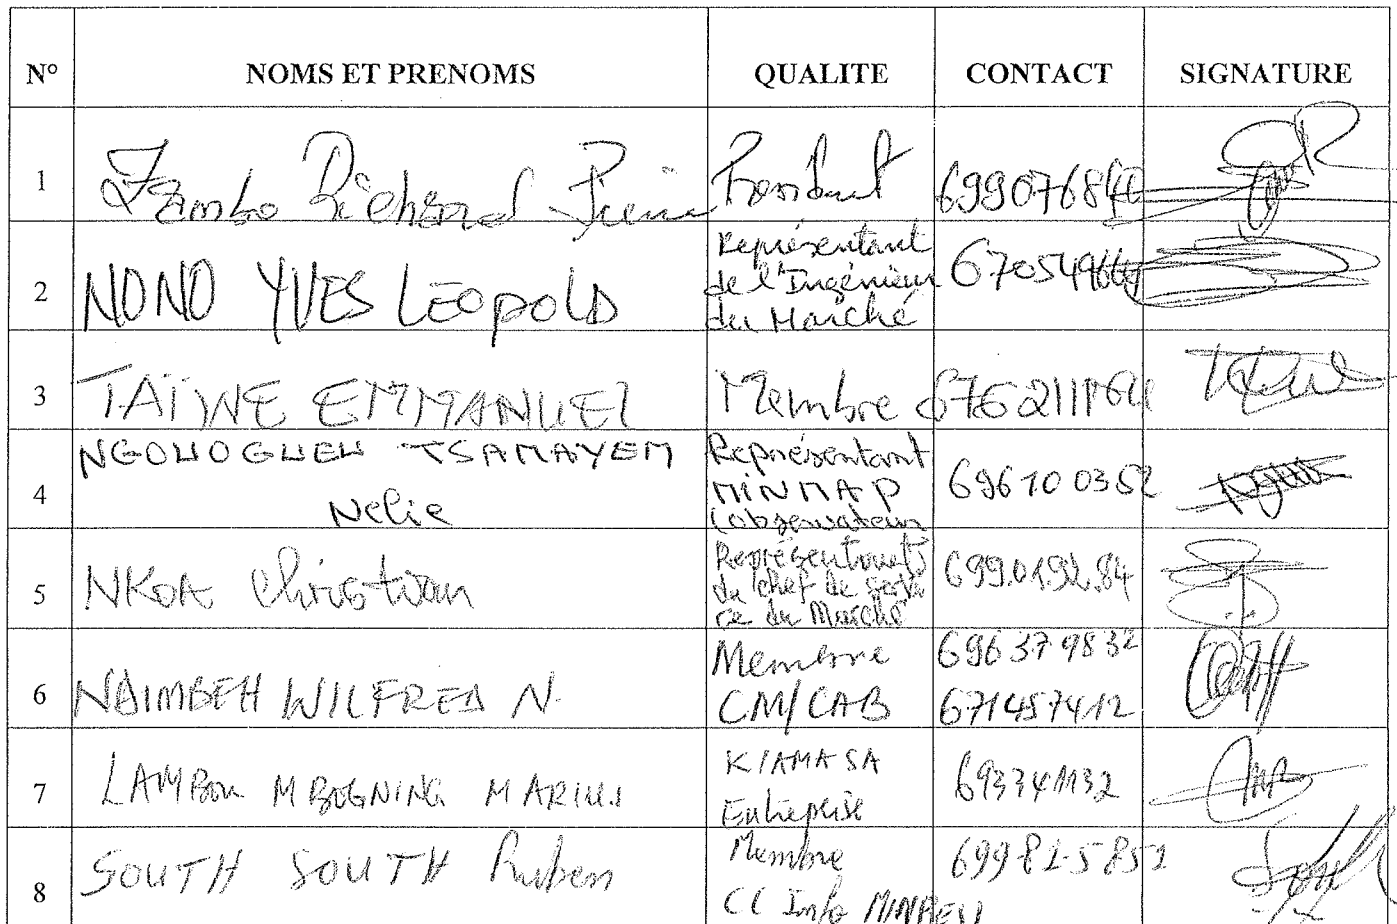 N° NOMS ET PRENOMS QUALITE CONTACT SIGNATURE
1 Zambo Richard Pierre President 69907684
2 NONO YVES LEOPOLD Représentant de l'Ingénieur du Marché 6705496
3 TAÏWE EMMANUEL Membre 676211164
4 NGOUOGUEU TSAMAYEM Nelie Représentant MINMAP (observateur 696100352
5 NKOA Christian Représentant du chef de service du Marché 699.0192.84
6 NDIMBEH WILFRED N. Membre CM/CAB 696379832 671457412
7 LAMBOU MBOGNING MARIUS KIAMA SA Entreprise 693341132
8 SOUTH SOUTH Ruben Membre CC Info MINDEV 699825852